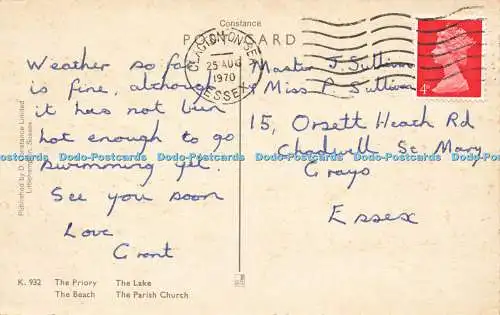 Constance
POST CARD
CLACTON-ON-SEA
25 AUG
1970
ESSEX
4d
Weather so far
is fine, although
it has not bin
hot enough to go
swimming yet.
See you soon
Love
Grant
Master J. Sullivan
Miss P. Sullivan
15, Orsett Heath Rd
Chadwell St. Mary
Grays
Essex
Published by D. Constance Limited
Littlehampton, Sussex
K. 932 The Priory The Lake
The Beach The Parish Church
Dodo-Postcards Dodo-Postcards Dodo-Postcards Dodo-Postcards Dodo-Postcards